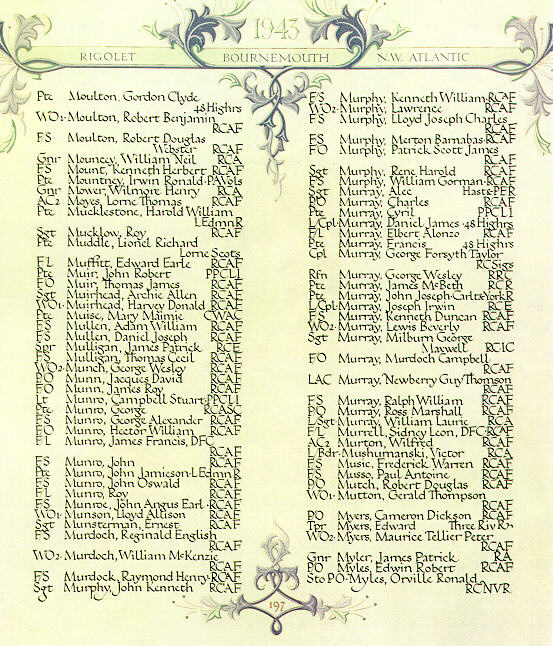 1943
RIGOLET BOURNEMOUTH N.W. ATLANTIC
Pte Moulton, Gordon Clyde
48 Highrs
WO1 Moulton, Robert Benjamin
RCAF
FS Moulton, Robert Douglas
Webster RCAF
Gnr Mouncey, William Neil RCA
FS Mount, Kenneth Herbert RCAF
Pte Mountney, Irwin Ronald·PAVols
Gnr Mover, Wilmore Henry RCA
AC2 Moyes, Lorne Thomas RCAF
Pte Mucklestone, Harold William
LEdmnR
Sgt Mucklow, Roy RCAF
Pte Muddle, Lionel Richard
Lorne Scots
FL Muffitt, Edward Earle RCAF
Pte Muir, John Robert PPCLI
FO Muir, Thomas James RCAF
Sgt Muirhead, Archie Allen RCAF
WO1 Muirhead, Harvey Donald RCAF
Pte Muise, Mary Maimie CWAC
FS Mullen, Adam William RCAF
FS Mullen, Daniel Joseph RCAF
Spr Mulligan, James Patrick RCE
FS Mulligan, Thomas Cecil RCAF
WO2 Munch, George Wesley RCAF
PO Munn, Jacques David RCAF
FO Munn, James Roy RCAF
Lt Munro, Campbell Stuart·PPCLI
Pte Munro, George RCASC
FS Munro, George Alexander RCAF
FO Munro, Hector William RCAF
FL Munro, James Francis, DFC
RCAF
FS Munro, John RCAF
Pte Munro, John Jamieson·LEdmnR
FS Munro, John Oswald RCAF
FL Munro, Roy RCAF
FS Munroe, John Angus Earl·RCAF
WO1 Munson, Lloyd Allison RCAF
Sgt Munsterman, Ernest RCAF
FS Murdoch, Reginald English
RCAF
WO2 Murdoch, William McKenzie
RCAF
FS Murdock, Raymond Henry·RCAF
Sgt Murphy, John Kenneth RCAF
FS Murphy, Kenneth William·RCAF
WO2 Murphy, Lawrence RCAF
FS Murphy, Lloyd Joseph Charles
RCAF
FS Murphy, Merton Barnabas·RCAF
FO Murphy, Patrick Scott James
RCAF
Sgt Murphy, Rene Harold RCAF
FS Murphy, William Gorman·RCAF
Sgt Murray, Alec Hast&PER
PO Murray, Charles RCAF
Pte Murray, Cyril PPCLI
L/Cpl Murray, Daniel James·48 Highrs
FL Murray, Elbert Alonzo RCAF
Pte Murray, Francis 48 Highrs
Cpl Murray, George Forsyth Taylor
RCSigs
Rfn Murray, George Wesley RRC
Pte Murray, James McBeth RCR
Pte Murray, John Joseph·Carlt&YorkR
L/Cpl Murray, Joseph Irwin RCE
FS Murray, Kenneth Duncan RCAF
WO2 Murray, Lewis Beverly RCAF
Sgt Murray, Milburn George
Maxwell RCIC
FO Murray, Murdoch Campbell
RCAF
LAC Murray, Newberry Guy Thomson
RCAF
FS Murray, Ralph William RCAF
PO Murray, Ross Marshall RCAF
L/Sgt Murray, William Laurie RCA
FL Murrell, Sidney Leon, DFC·RCAF
AC2 Murton, Wilfred RCAF
L/Bdr·Mushumanski, Victor RCA
FS Music, Frederick Warren RCAF
FS Musso, Paul Antoine RCAF
PO Mutch, Robert Douglas RCAF
WO1 Mutton, Gerald Thompson
RCAF
PO Myers, Cameron Dickson RCAF
Tpr Myers, Edward Three Riv Rn
WO2 Myers, Maurice Tellier Peter
RCAF
Gnr Myler, James Patrick RA
PO Myles, Edwin Robert RCAF
Sto PO·Myles, Orville Ronald
RCNVR
197